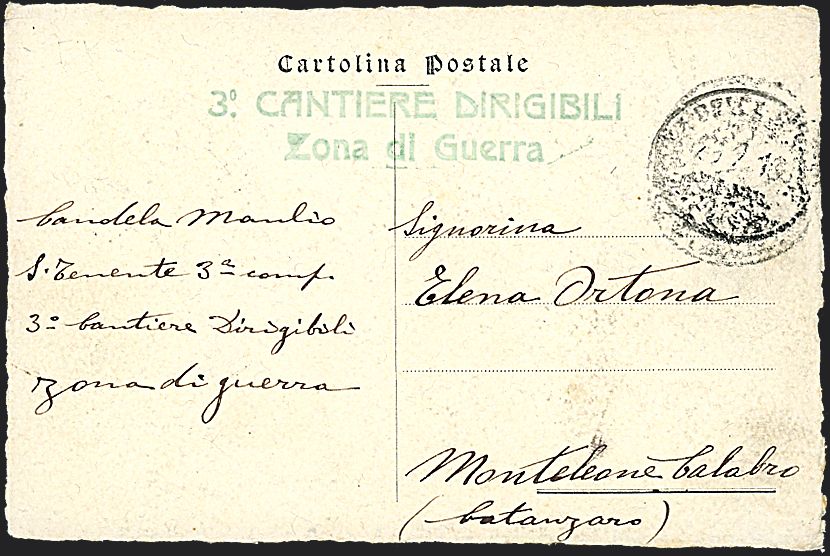 Cartolina Postale
3º. CANTIERE DIRIGIBILI
Zona di Guerra
Candela Manlio
S. Tenente 3ª comp.
3º Cantiere Dirigibili
zona di guerra
Signorina
Elena Ortona
Monteleone Calabro
(Catanzaro)